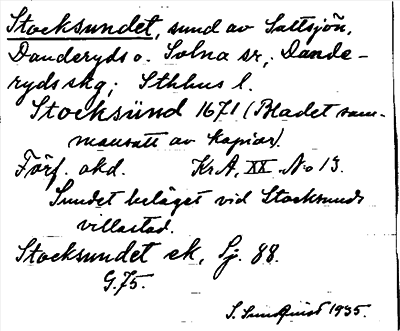 Stocksundet, sund av Saltsjön,
Danderyds o. Solna sr, Dande-
ryds skg; Sthlms l.
Stocksünd 1671 (Bladet sam-
mansatt av kopior).
Förf. okd. Kr A, XX. No 13.
Sundet beläget vid Stocksunds
villastad.
Stocksundet ek, Sj. 88.
G.75.
S. Sundquist 1935.